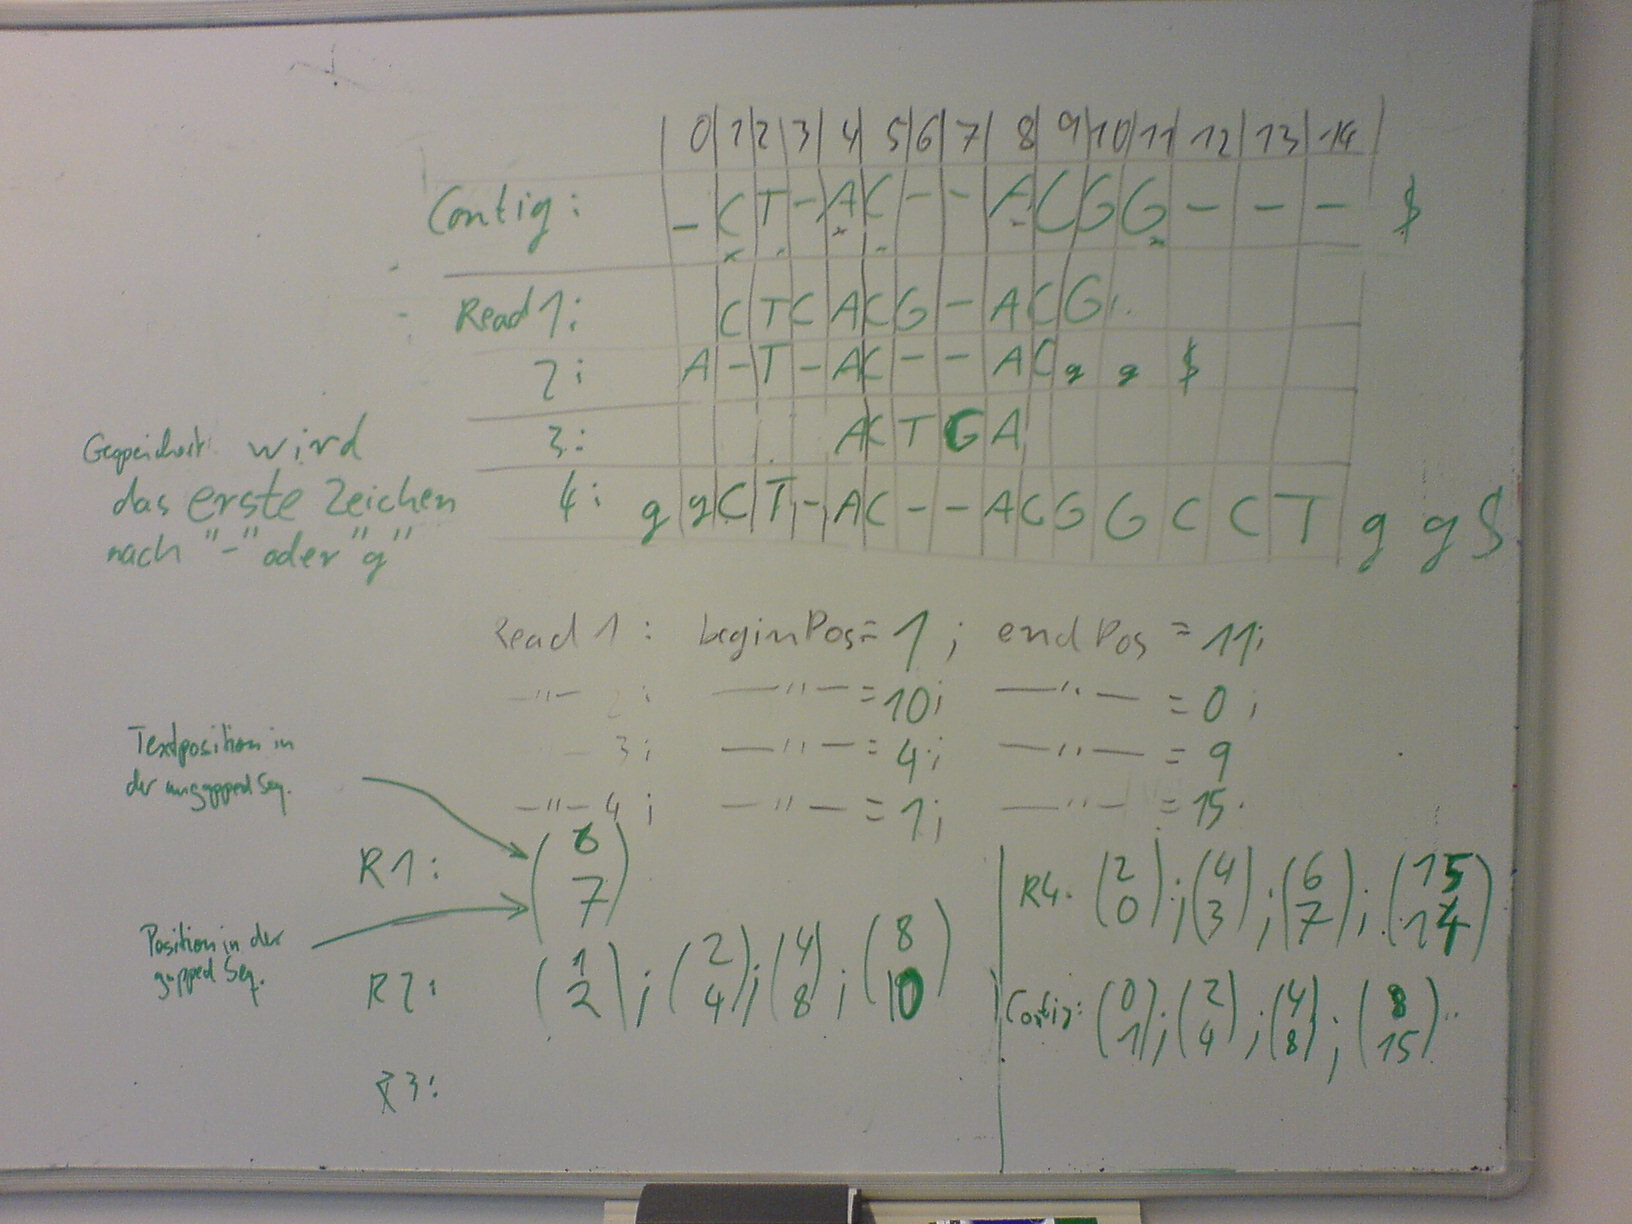 0 1 2 3 4 5 6 7 8 9 10 11 12 13 14
Contig: - C T - A C - - A C G G - - - $
Read 1: C T C A C G - A C G
2: A - T - A C - - A C g g $
3: A C T G A
4: g g C T - A C - - A C G G C C T g g $
wird
das erste Zeichen
nach "-" oder "g"
Read 1: beginPos = 1; endPos = 11;
—"— 2: —"— = 10; —"— = 0;
— 3; —"— = 4; —"— = 9
—"— 4; —"— = 1; —"— = 15.
Textposition in
der ungapped Seq.
Position in der
gapped Seq.
R1: (6 7)
R2: (1 2); (2 4); (4 8); (8 10)
R3:
R4. (2 0); (4 3); (6 7); (15 14)
Contig: (0 1); (2 4); (4 8); (8 15)